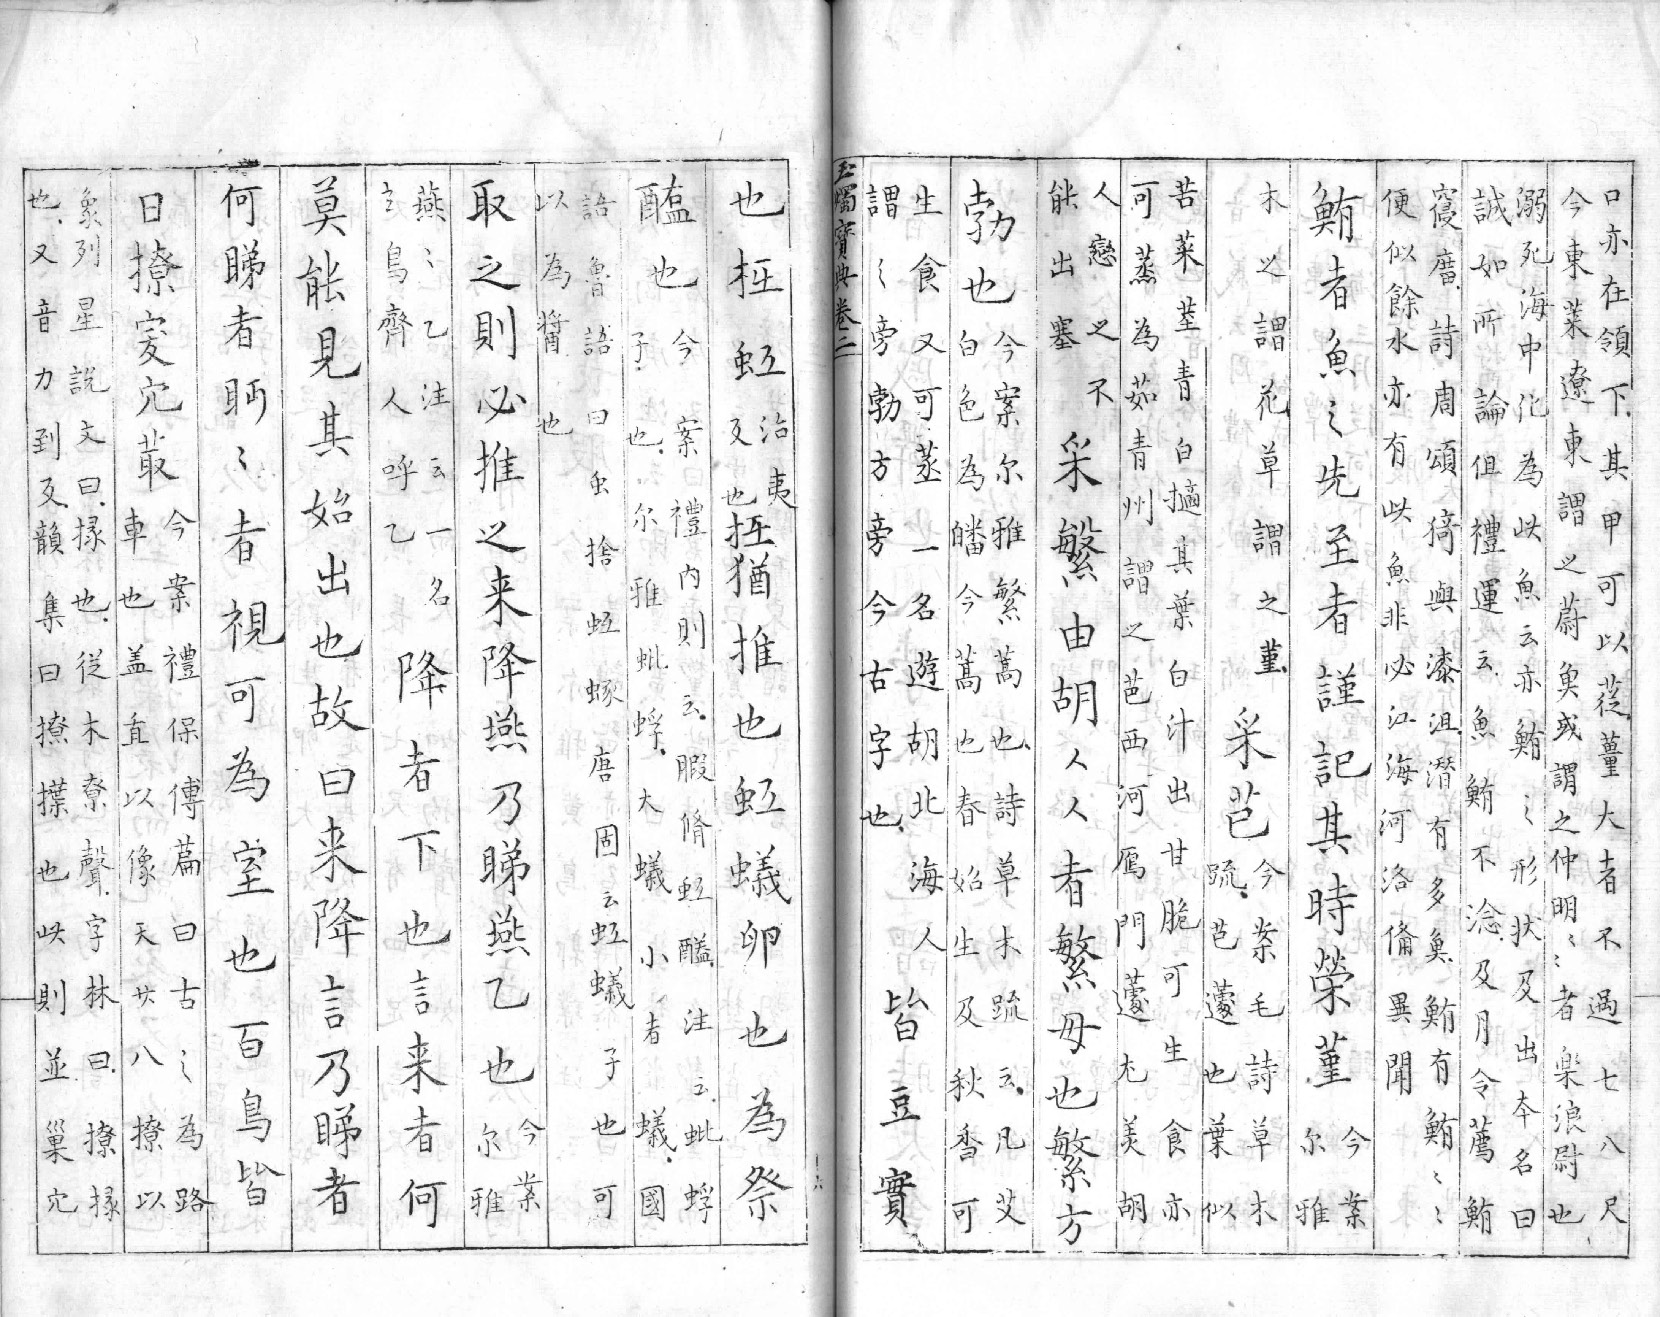 口亦在領下其甲可以蓯薑大者不過七八尺
今東萊遼東謂之蔚魚或謂之仲明〻者樂浪尉也
溺死海中化為此魚云亦鮪〻形狀及出本名曰
誠如所論但禮運云魚鮪不淰及月令薦鮪
寢廟詩周頌猗與漆沮潛有多魚鮪有鮪〻〻
便似餘水亦有此魚非必江海河洛俻異聞
鮪者魚之先至者謹記其時榮菫今案尒雅
木之謂花草謂之菫采芑今案毛詩草木
疏芑蘧也葉似
苦菜莖青白擿其葉白汁出甘脆可生食亦
可蒸為茹青州謂之芑西河鴈門蘧尤美胡
人戀之不
能出塞采繁由胡人人者繁母也繁方
勃也今案尒雅繁蒿也詩草木疏云凡艾
白色為皤今蒿也春始生及秋香可
生食又可蒸一名遊胡北海人
謂〻旁勃方旁今古字也皆豆實
玉燭寶典卷二
也抵蚳治夷反也抵猶推也蚳蟻卵也為祭
醢也今案禮內則云腶脩蚳醢注云蚍蜉
子也尒雅蚍蜉大蟻小者蟻國
語魯語曰虫捨蚳蝝唐固云蚳蟻子也可
以為醬也
取之則必推之来降燕乃睇燕乙也今案尒雅
燕〻乙注云一名
玄鳥齊人呼乙降者下也言来者何
莫能見其始出也故曰来降言乃睇者
何睇者眄〻者視可為室也百鳥皆
曰撩窔穴菆今案禮保傅篇曰古〻為路
車也盖直以像天廿八撩以
象列星說文曰掾也從木尞聲字林曰撩掾
也又音力到反韻集曰撩擛也此則並巢穴